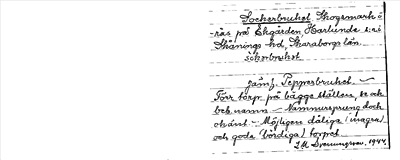 Sockerbruket Skogsmark ö
-ràs på Ekgården Härlunda s:n i
Skånings hd, Skaraborgs län.
såkerbruket
jämf. Pepparbruket.
Förr torp på bägge ställen, se ock
beb. namn — Namnursprung dock
okänt — Möjligen dåliga (magra)
och goda (bördiga) torpet
J.M. Svenungsson. 1944.